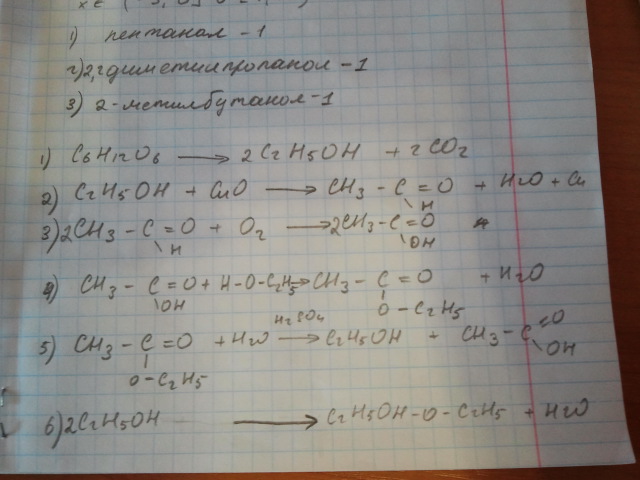 1) пентанол -1
2) 2,2диметилпропанол -1
3) 2-метилбутанол-1
1) C6H12O6 ⟶ 2C2H5OH + 2CO2
2) C2H5OH + CuO ⟶ CH3 - C = O + H2O + Cu
\ H
3) 2CH3 - C = O + O2 ⟶ 2CH3 - C = O
\ H \ OH
4) CH3 - C = O + H-O-C2H5 → CH3 - C = O + H2O
\ OH | O - C2H5
H2SO4
5) CH3 - C = O + H2O ⟶ C2H5OH + CH3 - C = O
| \ OH
O - C2H5
6) 2C2H5OH ⟶ C2H5OH-O-C2H5 + H2O